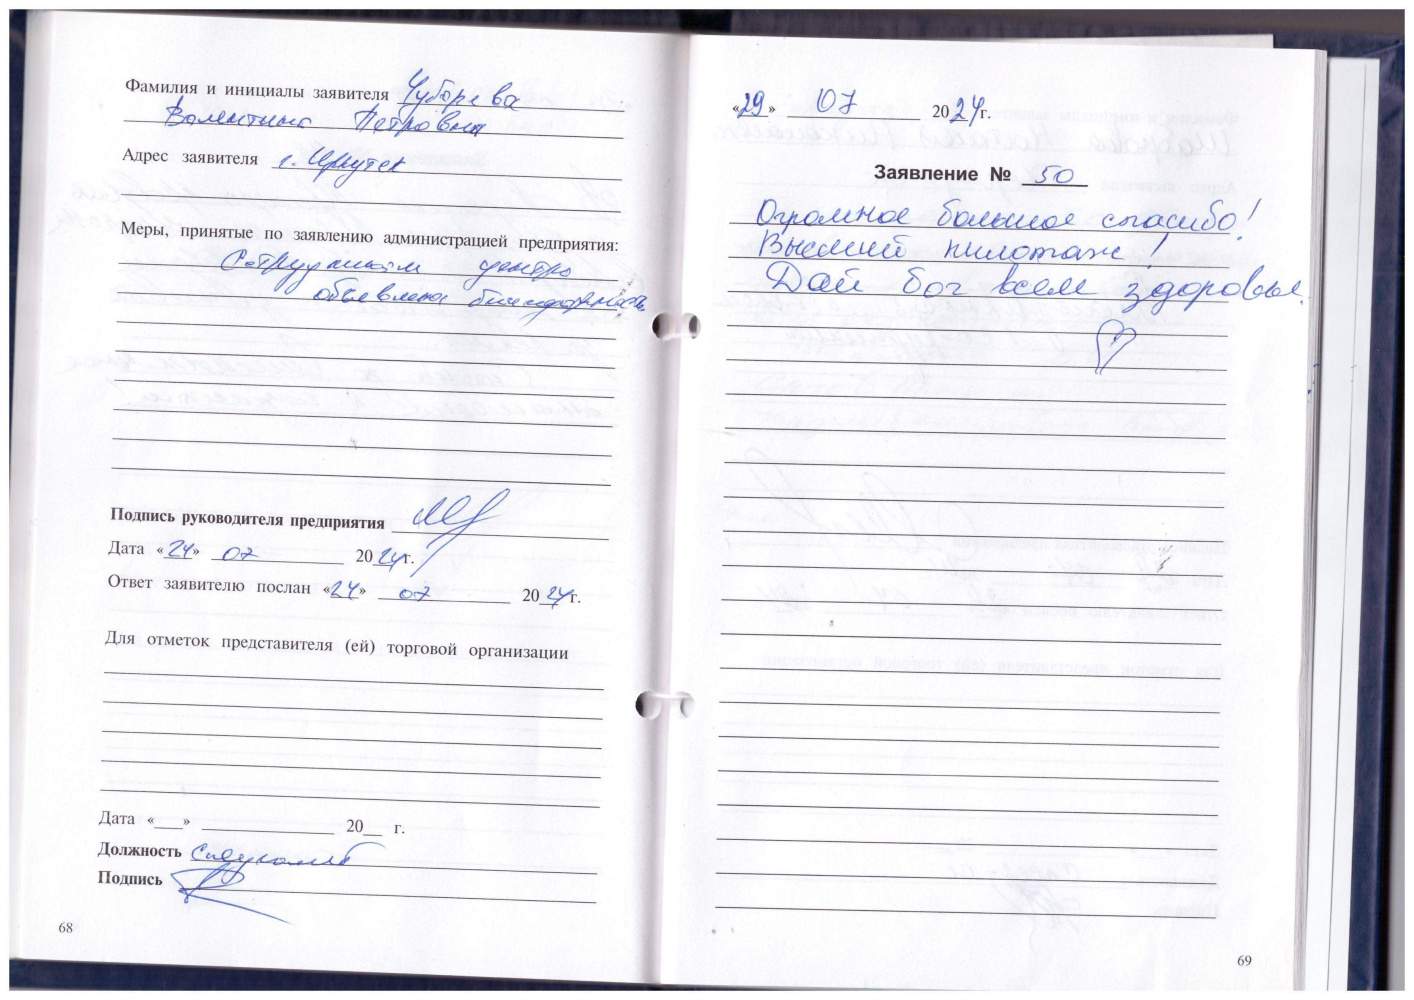 Фамилия и инициалы заявителя Чубарева
Валентина Петровна
Адрес заявителя г. Иркутск
Меры, принятые по заявлению администрацией предприятия:
Сотрудникам центра
объявлена благодарность
Подпись руководителя предприятия
Дата «24» 07 2024г.
Ответ заявителю послан «24» 07 2024г.
Для отметок представителя (ей) торговой организации
Дата «___» ______________ 20__ г.
Должность
Подпись
68
«29» 07 2024г.
Заявление № 50
Огромное большое спасибо!
Высший пилотаж!
Дай бог всем здоровья.
69